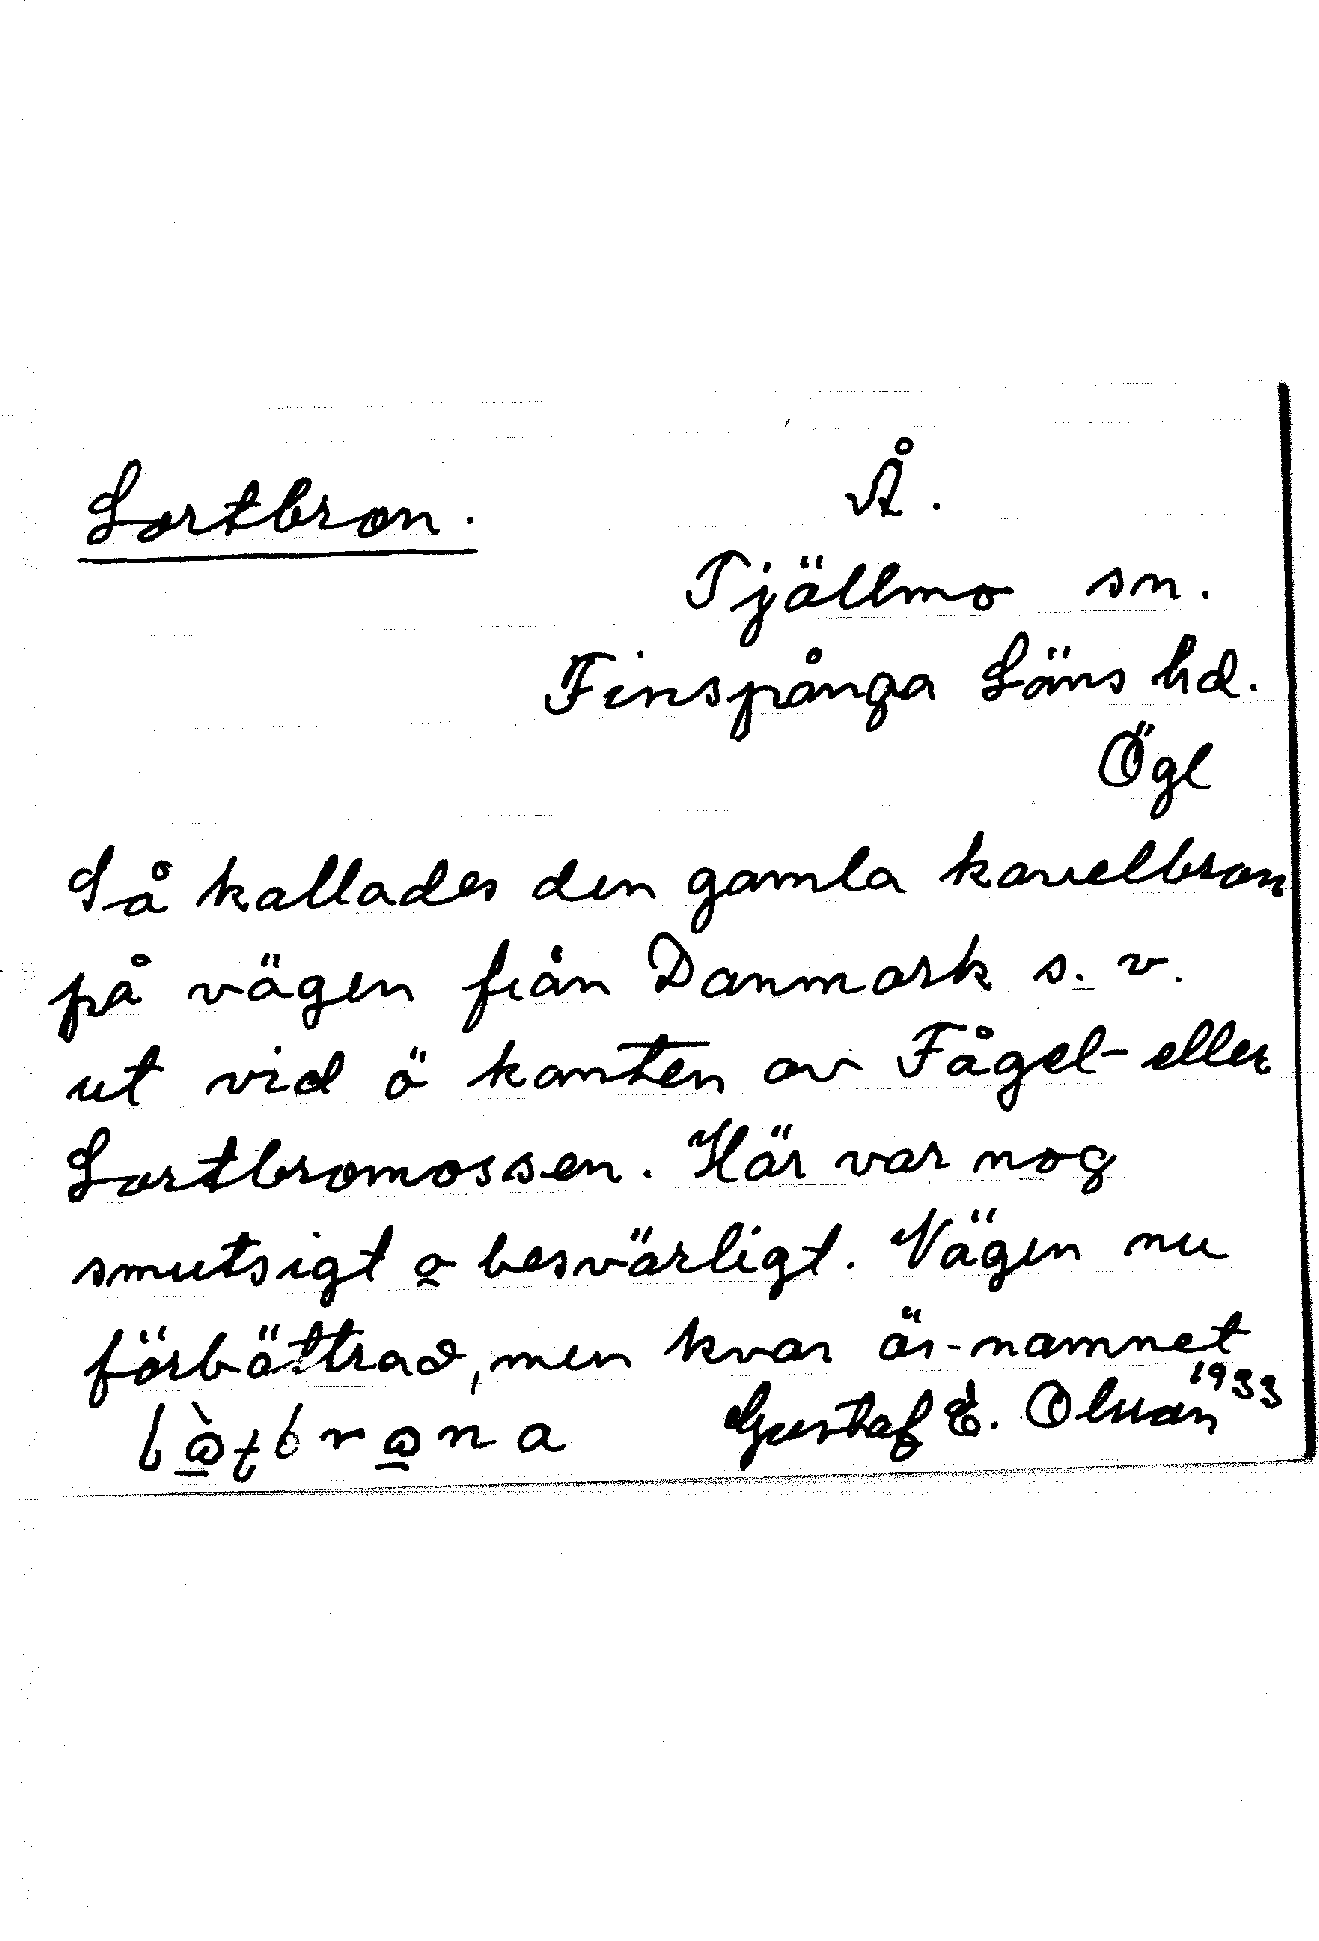 Lortbron. Å.
Tjällmo sn.
Finspånga Läns hd.
Ögl
Så kallades den gamla kavelbron
på vägen från Danmark s. v.
ut vid ö kanten av Fågel- eller
Lortbromossen. Här var nog
smutsigt o besvärligt. Vägen nu
förbättrad, men kvar är namnet
Gustaf E. Olsson 1933